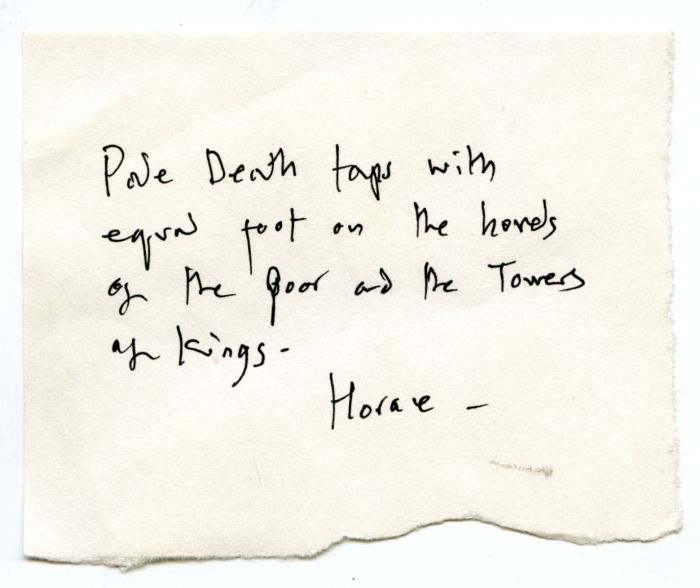 Pale Death taps with
equal foot on the hovels
of the poor and the Towers
of Kings -
Horace -